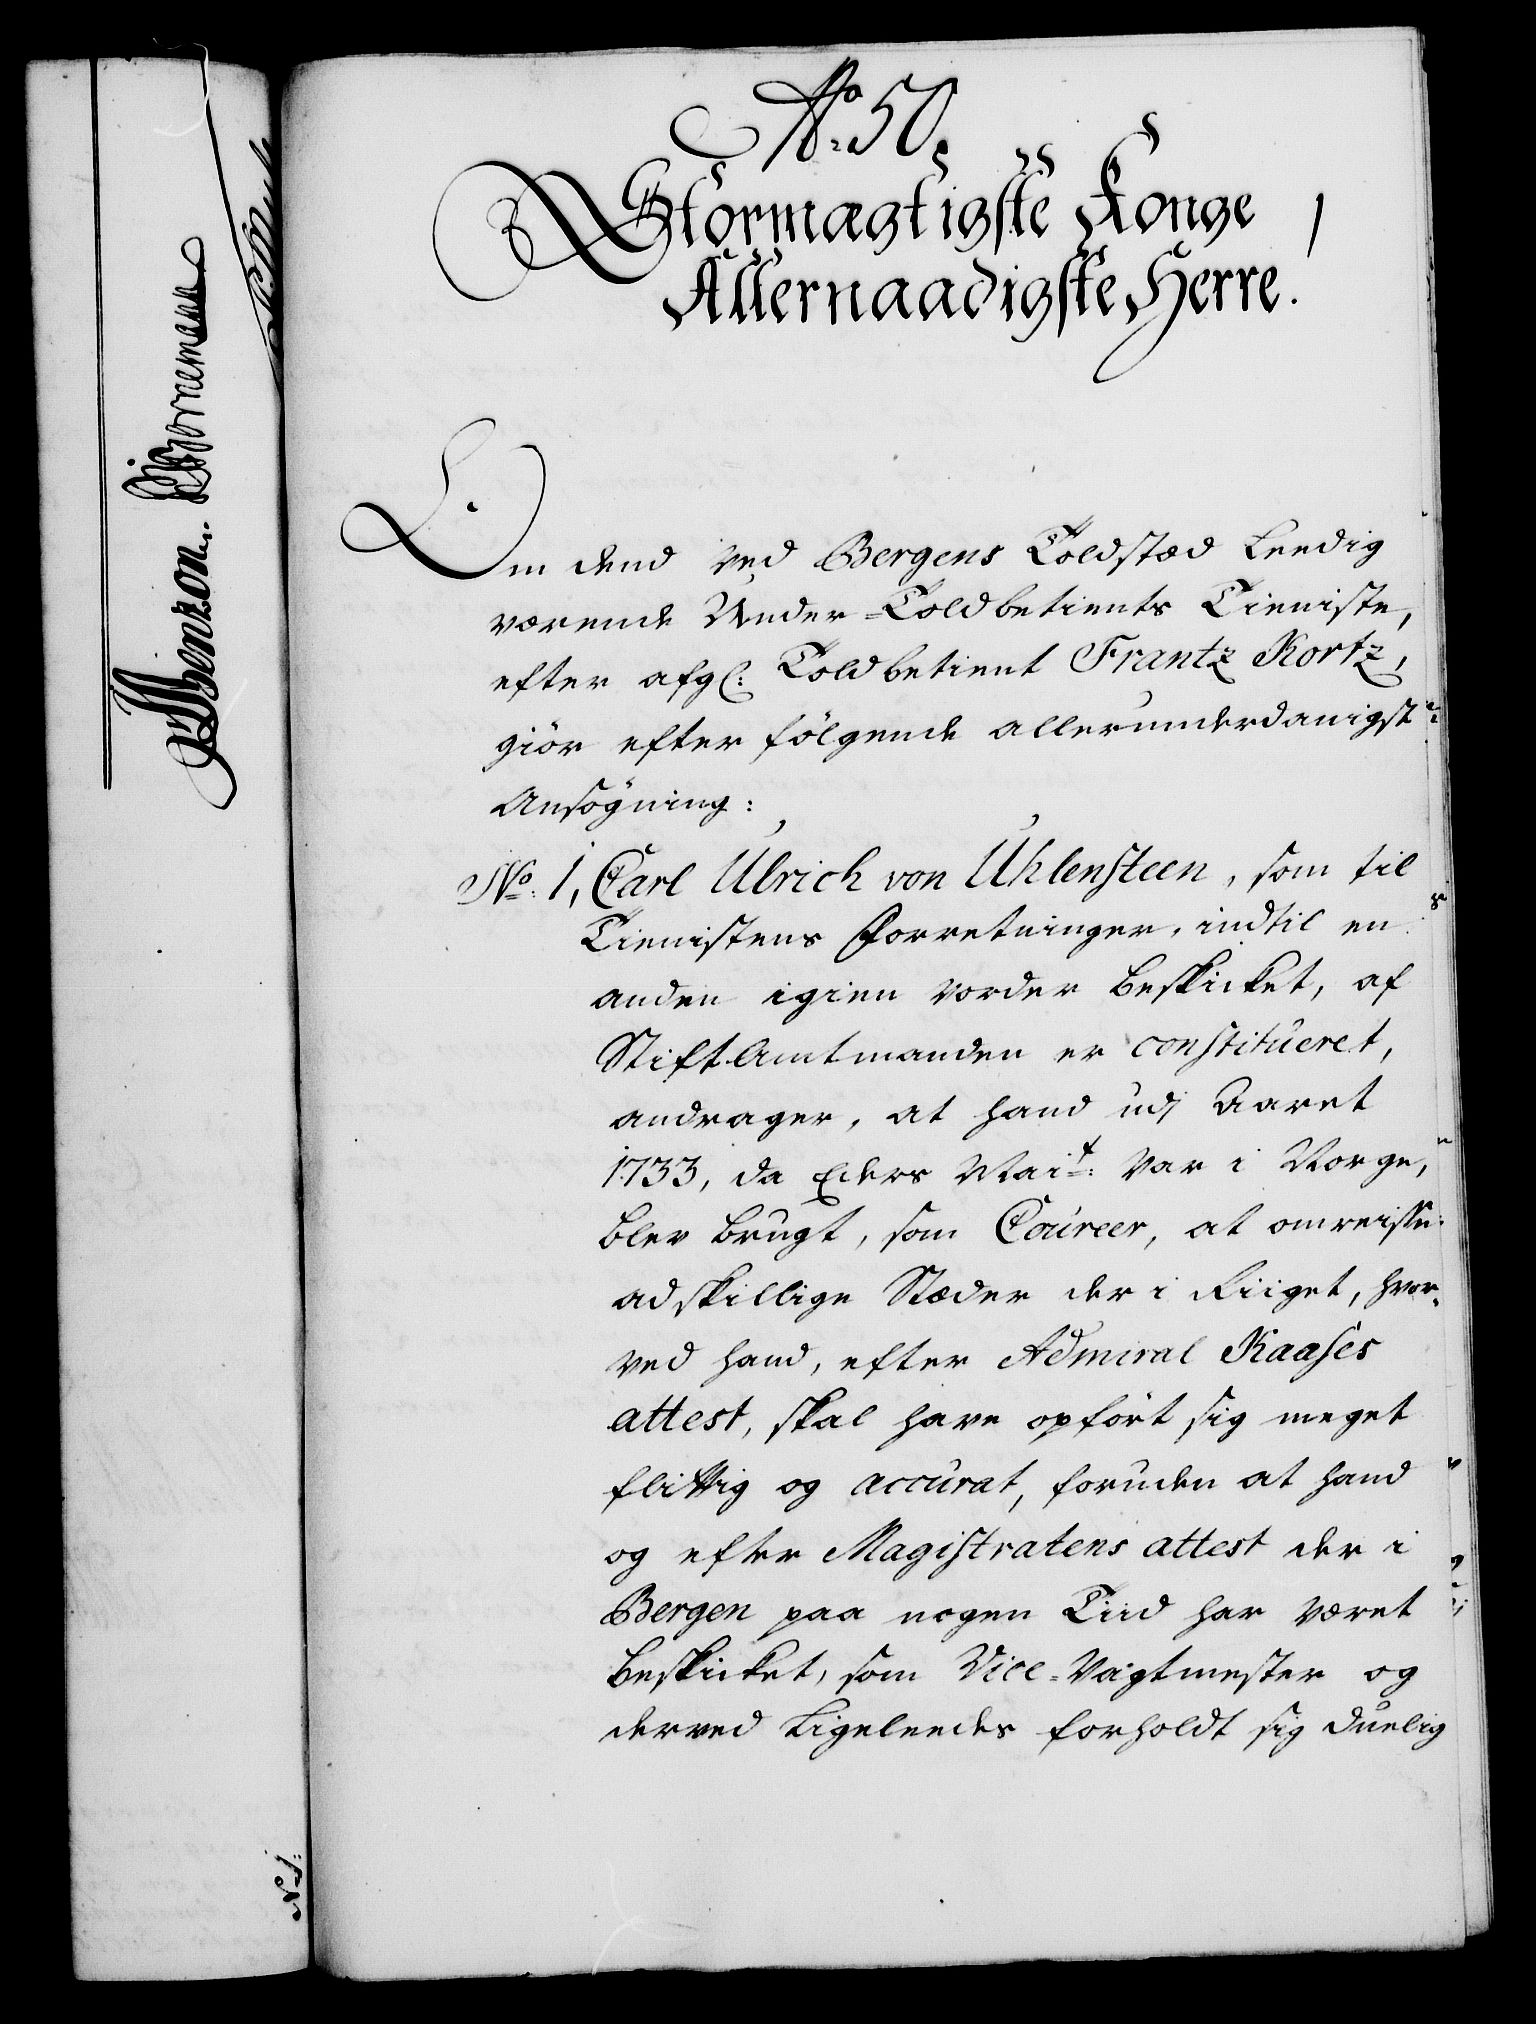 No. 50.
Stormægtigste Konge
Allernaadigste Herre.
Om dend ved Bergens Toldstæd Leedig
værende Under-Toldbetients Tieniste,
efter afg: Toldbetient Frantz Kortz,
giör efter fölgende allerunderdanigst
Ansögning:
No: 1, Carl Ulrich von Uhlensteen, som til
Tienistens Forretninger, indtil en
anden igien vorder beskicket, af
StiftAmtmanden er constitueret,
andrager, at hand udj Aaret
1733, da Eders Mait: var i Norge,
blev brugt, som Coureer, at omreisse
adskillige Stæder der i Riiget, hvor-
ved hand, efter Admiral Kaases
attest, skal have opfört sig meget
flittig og accurat, foruden at hand
og efter Magistratens attest der i
Bergen paa nogen Tiid har været
beskicket, som Vice-Vagtmester og
derved Ligeleedes forholdt sig duelig
Benzon. Bornemann
N 1: